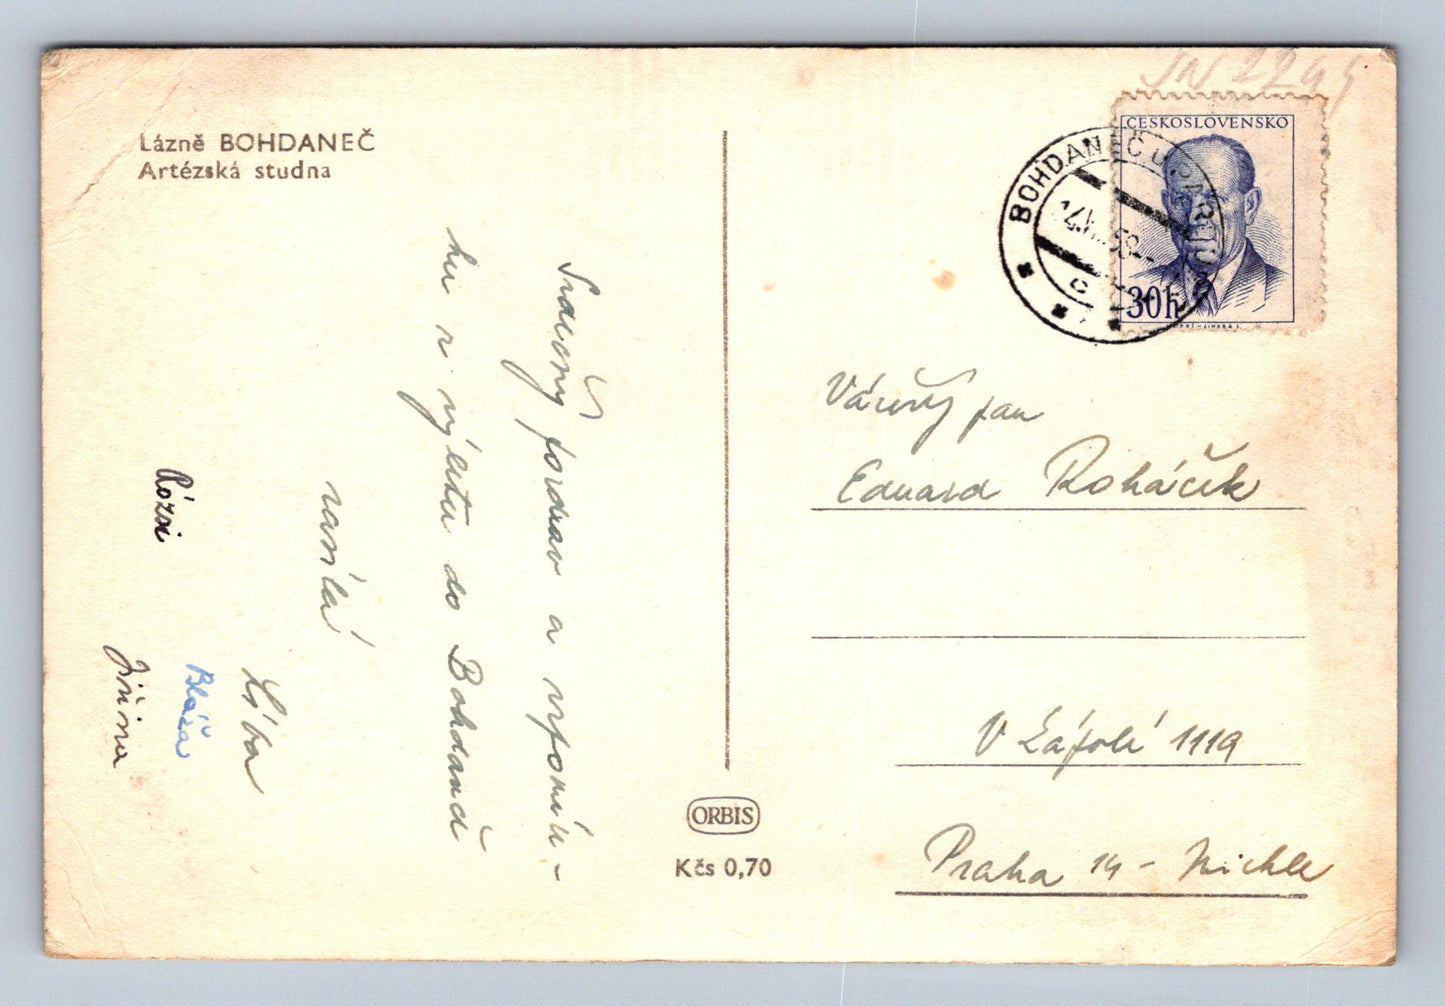 Lázně BOHDANEČ
Artézská studna
Srdečný pozdrav a vzpomín-
ku z výletu do Bohdanče
zasílá
Líba
Rózsi
Blaža
Jiřina
ORBIS
Kčs 0,70
ČESKOSLOVENSKO
30h
BOHDANEČ U PARDUBIC
Vážený pan
Eduard Roháček
V Zápolí 1119
Praha 14 - Michle